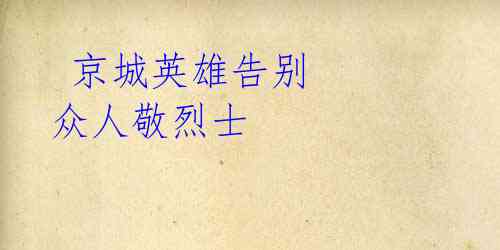 京城英雄告别
众人敬烈士